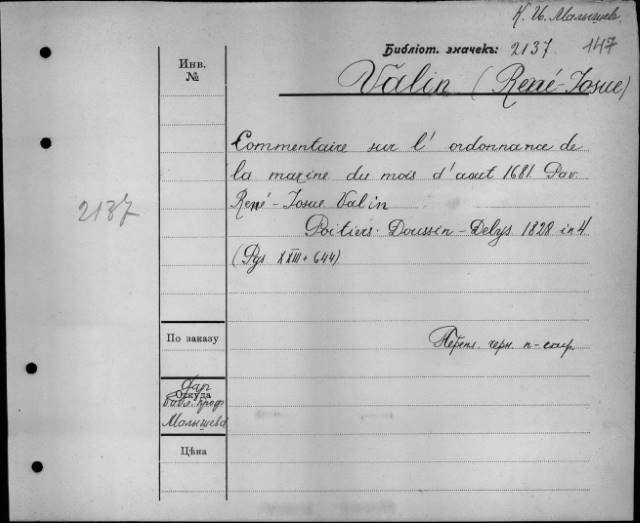 К. И. Малышев.
Библіот. значекъ: 2137 147
Инв.
№
Valin (René-Josue)
Commentaire sur l' ordonnance de
la marine du mois d'aout 1681. Par
René-Josue Valin
2137
Poitiers. Doussin-Delys 1828 in 4
(Pgs XXIII + 644)
По заказу
Перепл. черн. п-саф.
Откуда
Дар
библ. проф.
Малышева
Цѣна